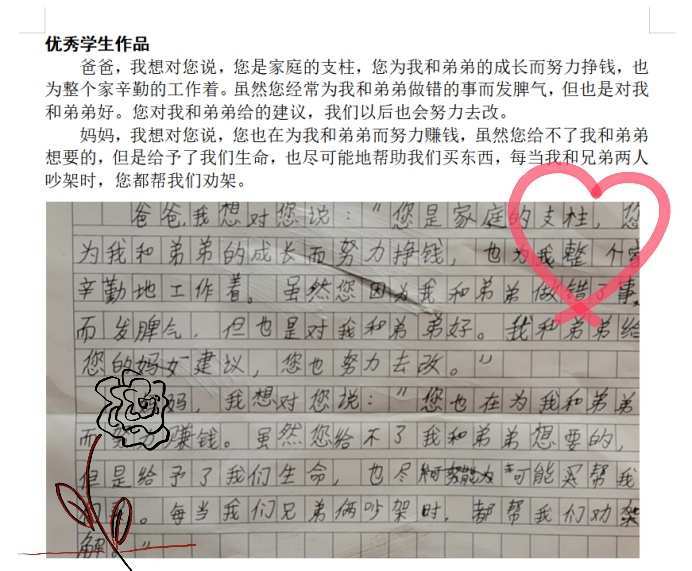 优秀学生作品
爸爸，我想对您说，您是家庭的支柱，您为我和弟弟的成长而努力挣钱，也
为整个家辛勤的工作着。虽然您经常为我和弟弟做错的事而发脾气，但也是对我
和弟弟好。您对我和弟弟给的建议，我们以后也会努力去改。
妈妈，我想对您说，您也在为我和弟弟而努力赚钱，虽然您给不了我和弟弟
想要的，但是给予了我们生命，也尽可能地帮助我们买东西，每当我和兄弟两人
吵架时，您都帮我们劝架。
爸爸，我想对您说：“您是家庭的支柱，您
为我和弟弟的成长而努力挣钱，也为我整个家
辛勤地工作着。虽然您因为我和弟弟做错了事，
而发脾气，但也是对我和弟弟好。我和弟弟给
您的建议，您也努力去改。”
妈，我想对您说：“您也在为我和弟弟
而努力赚钱。虽然您给不了我和弟弟想要的，
但是给予了我们生命，也尽可能买帮我
们。每当我们兄弟俩吵架时，都帮我们劝架
解。”